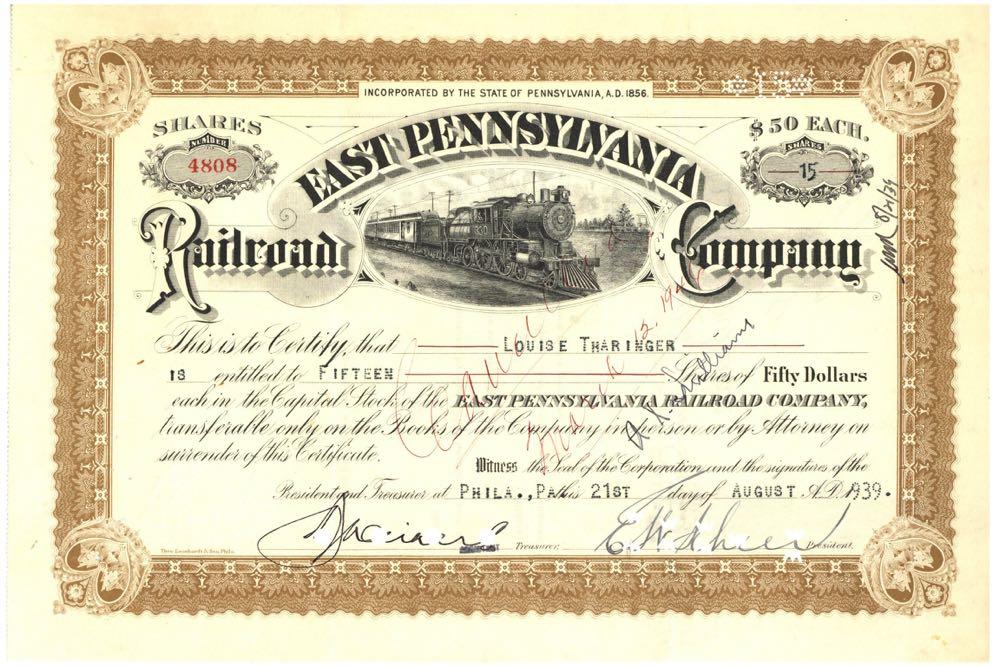 INCORPORATED BY THE STATE OF PENNSYLVANIA, A.D. 1856.
SHARES
NUMBER
4808
$50 EACH.
SHARES
15
8/21/39
EAST PENNSYLVANIA
Railroad Company
This is to Certify, that LOUISE THARINGER
IS entitled to FIFTEEN Shares of Fifty Dollars
each in the Capital Stock of the EAST PENNSYLVANIA RAILROAD COMPANY,
transferable only on the Books of the Company in person or by Attorney on
surrender of this Certificate.
Cancelled
March 12, 1946
Williams
Witness the Seal of the Corporation and the signatures of the
President and Treasurer at PHILA., PA. this 21ST day of AUGUST A.D. 1939.
Treasurer.
President.
Theo Leonhardt & Son, Phila.